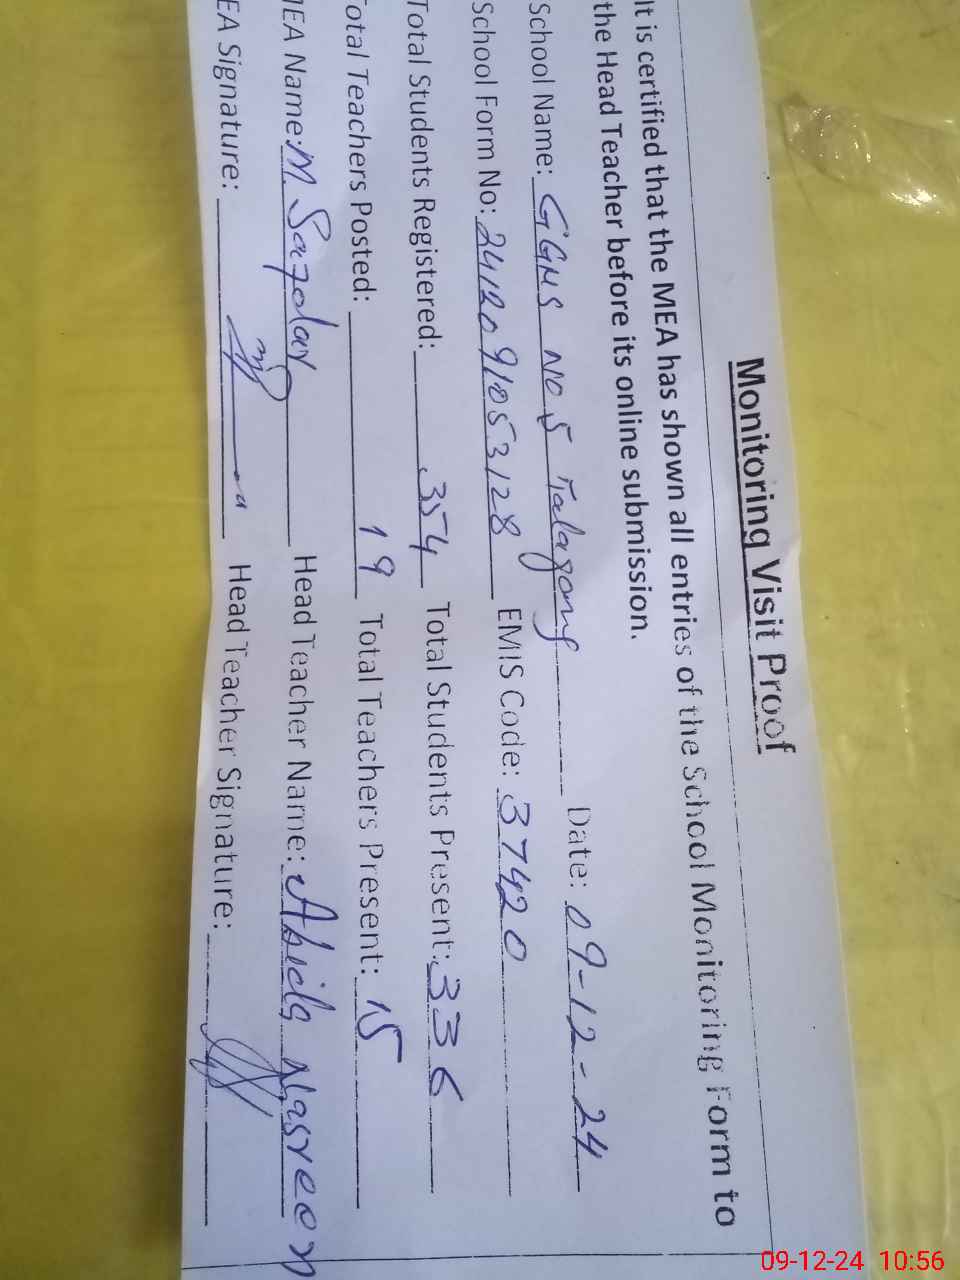 Monitoring Visit Proof
It is certified that the MEA has shown all entries of the School Monitoring Form to
the Head Teacher before its online submission.
School Name: GGHS No 5 Talagang Date: 09-12-24
School Form No: 2412091053128 EMIS Code: 37420
Total Students Registered: 354 Total Students Present: 336
Total Teachers Posted: 19 Total Teachers Present: 15
MEA Name: M. Head Teacher Name: Abida Nasreen
EA Signature: Head Teacher Signature:
09-12-24 10:56